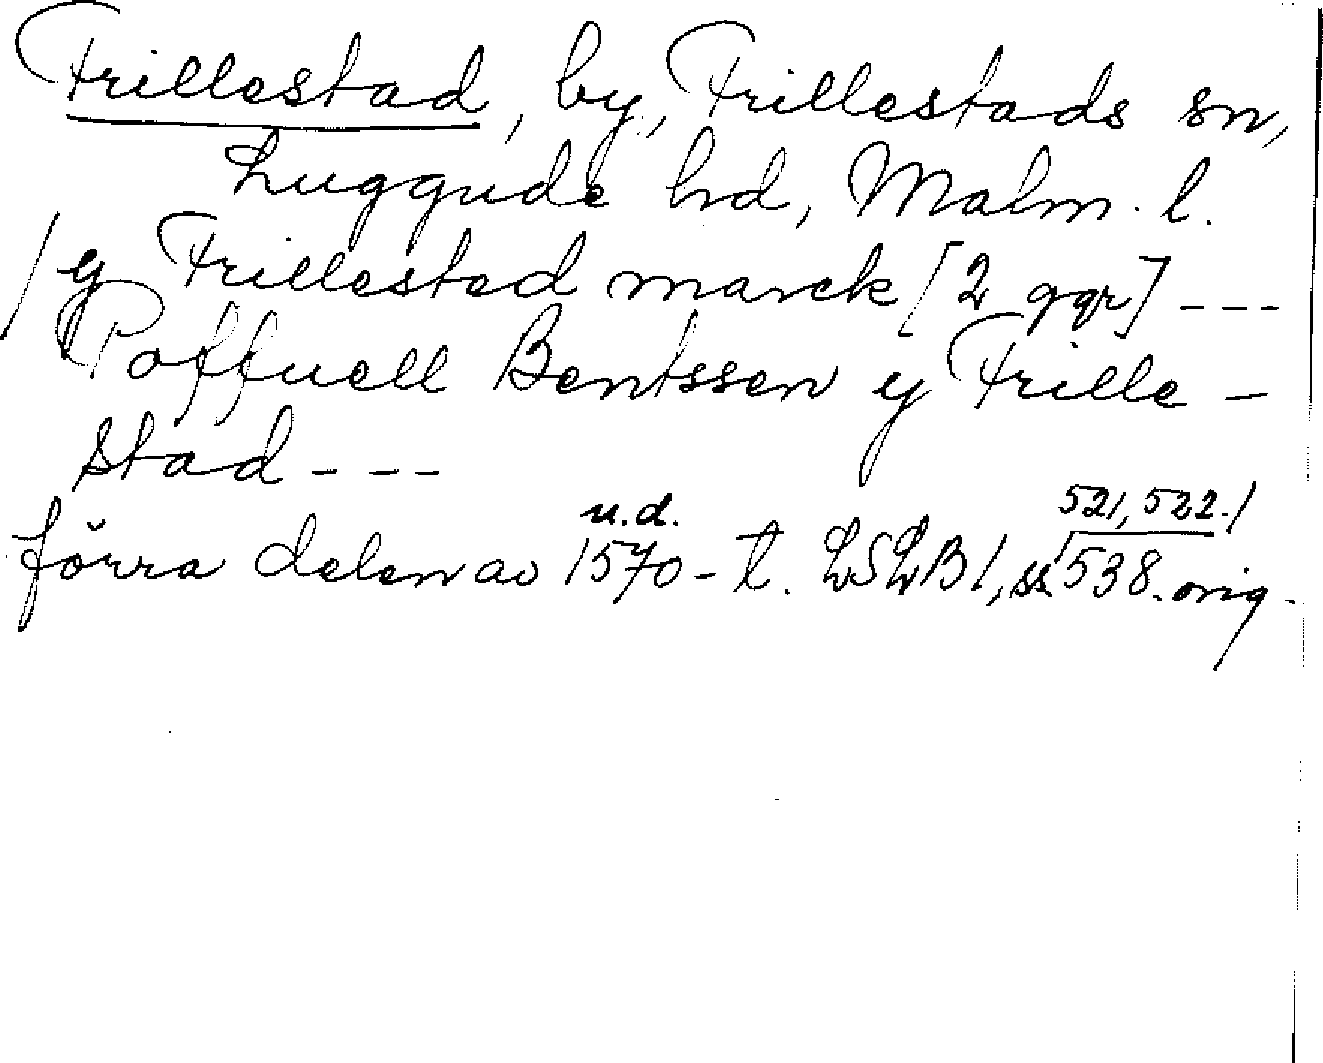 Frillestad, by, Frillestads sn,
Luggude hd, Malm. l.
/ y Frillestad marck [2 ggr] ---
Poffuell Bentssen y Frille-
stad ---
u.d. 521, 522./
förra delen av 1570-t. LSLB 1, ss 538. orig.